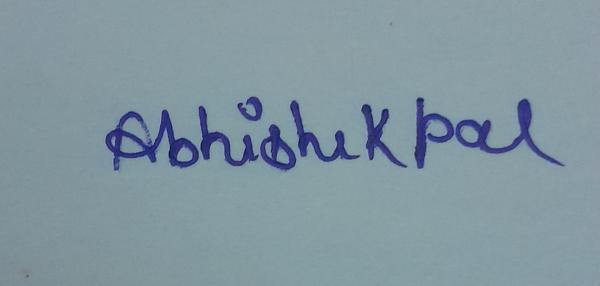 Abhishek pal